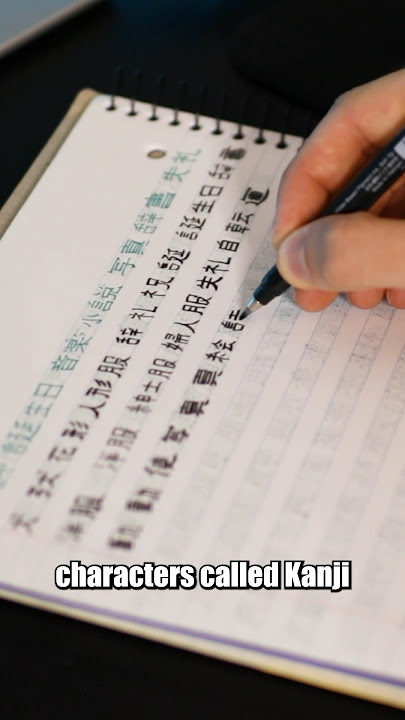 誕生日 音楽 小説 写真 辞書 失礼
花 形 人形 服 辞 礼 祝 誕 誕 誕生日
洋服 洋服 紳士服 婦人服 失礼 自転
動 動 便 写 真 買 絵
characters called Kanji